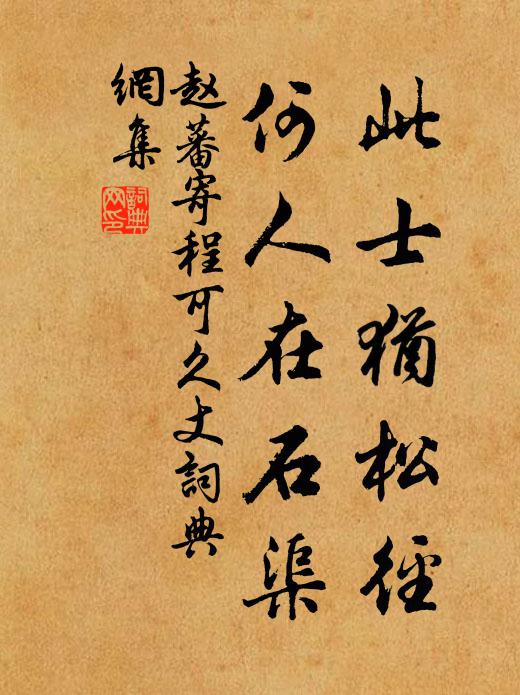 此士猶松徑
何人在石渠
趙蕃寄程可久丈詞典
網集
詞典
網印